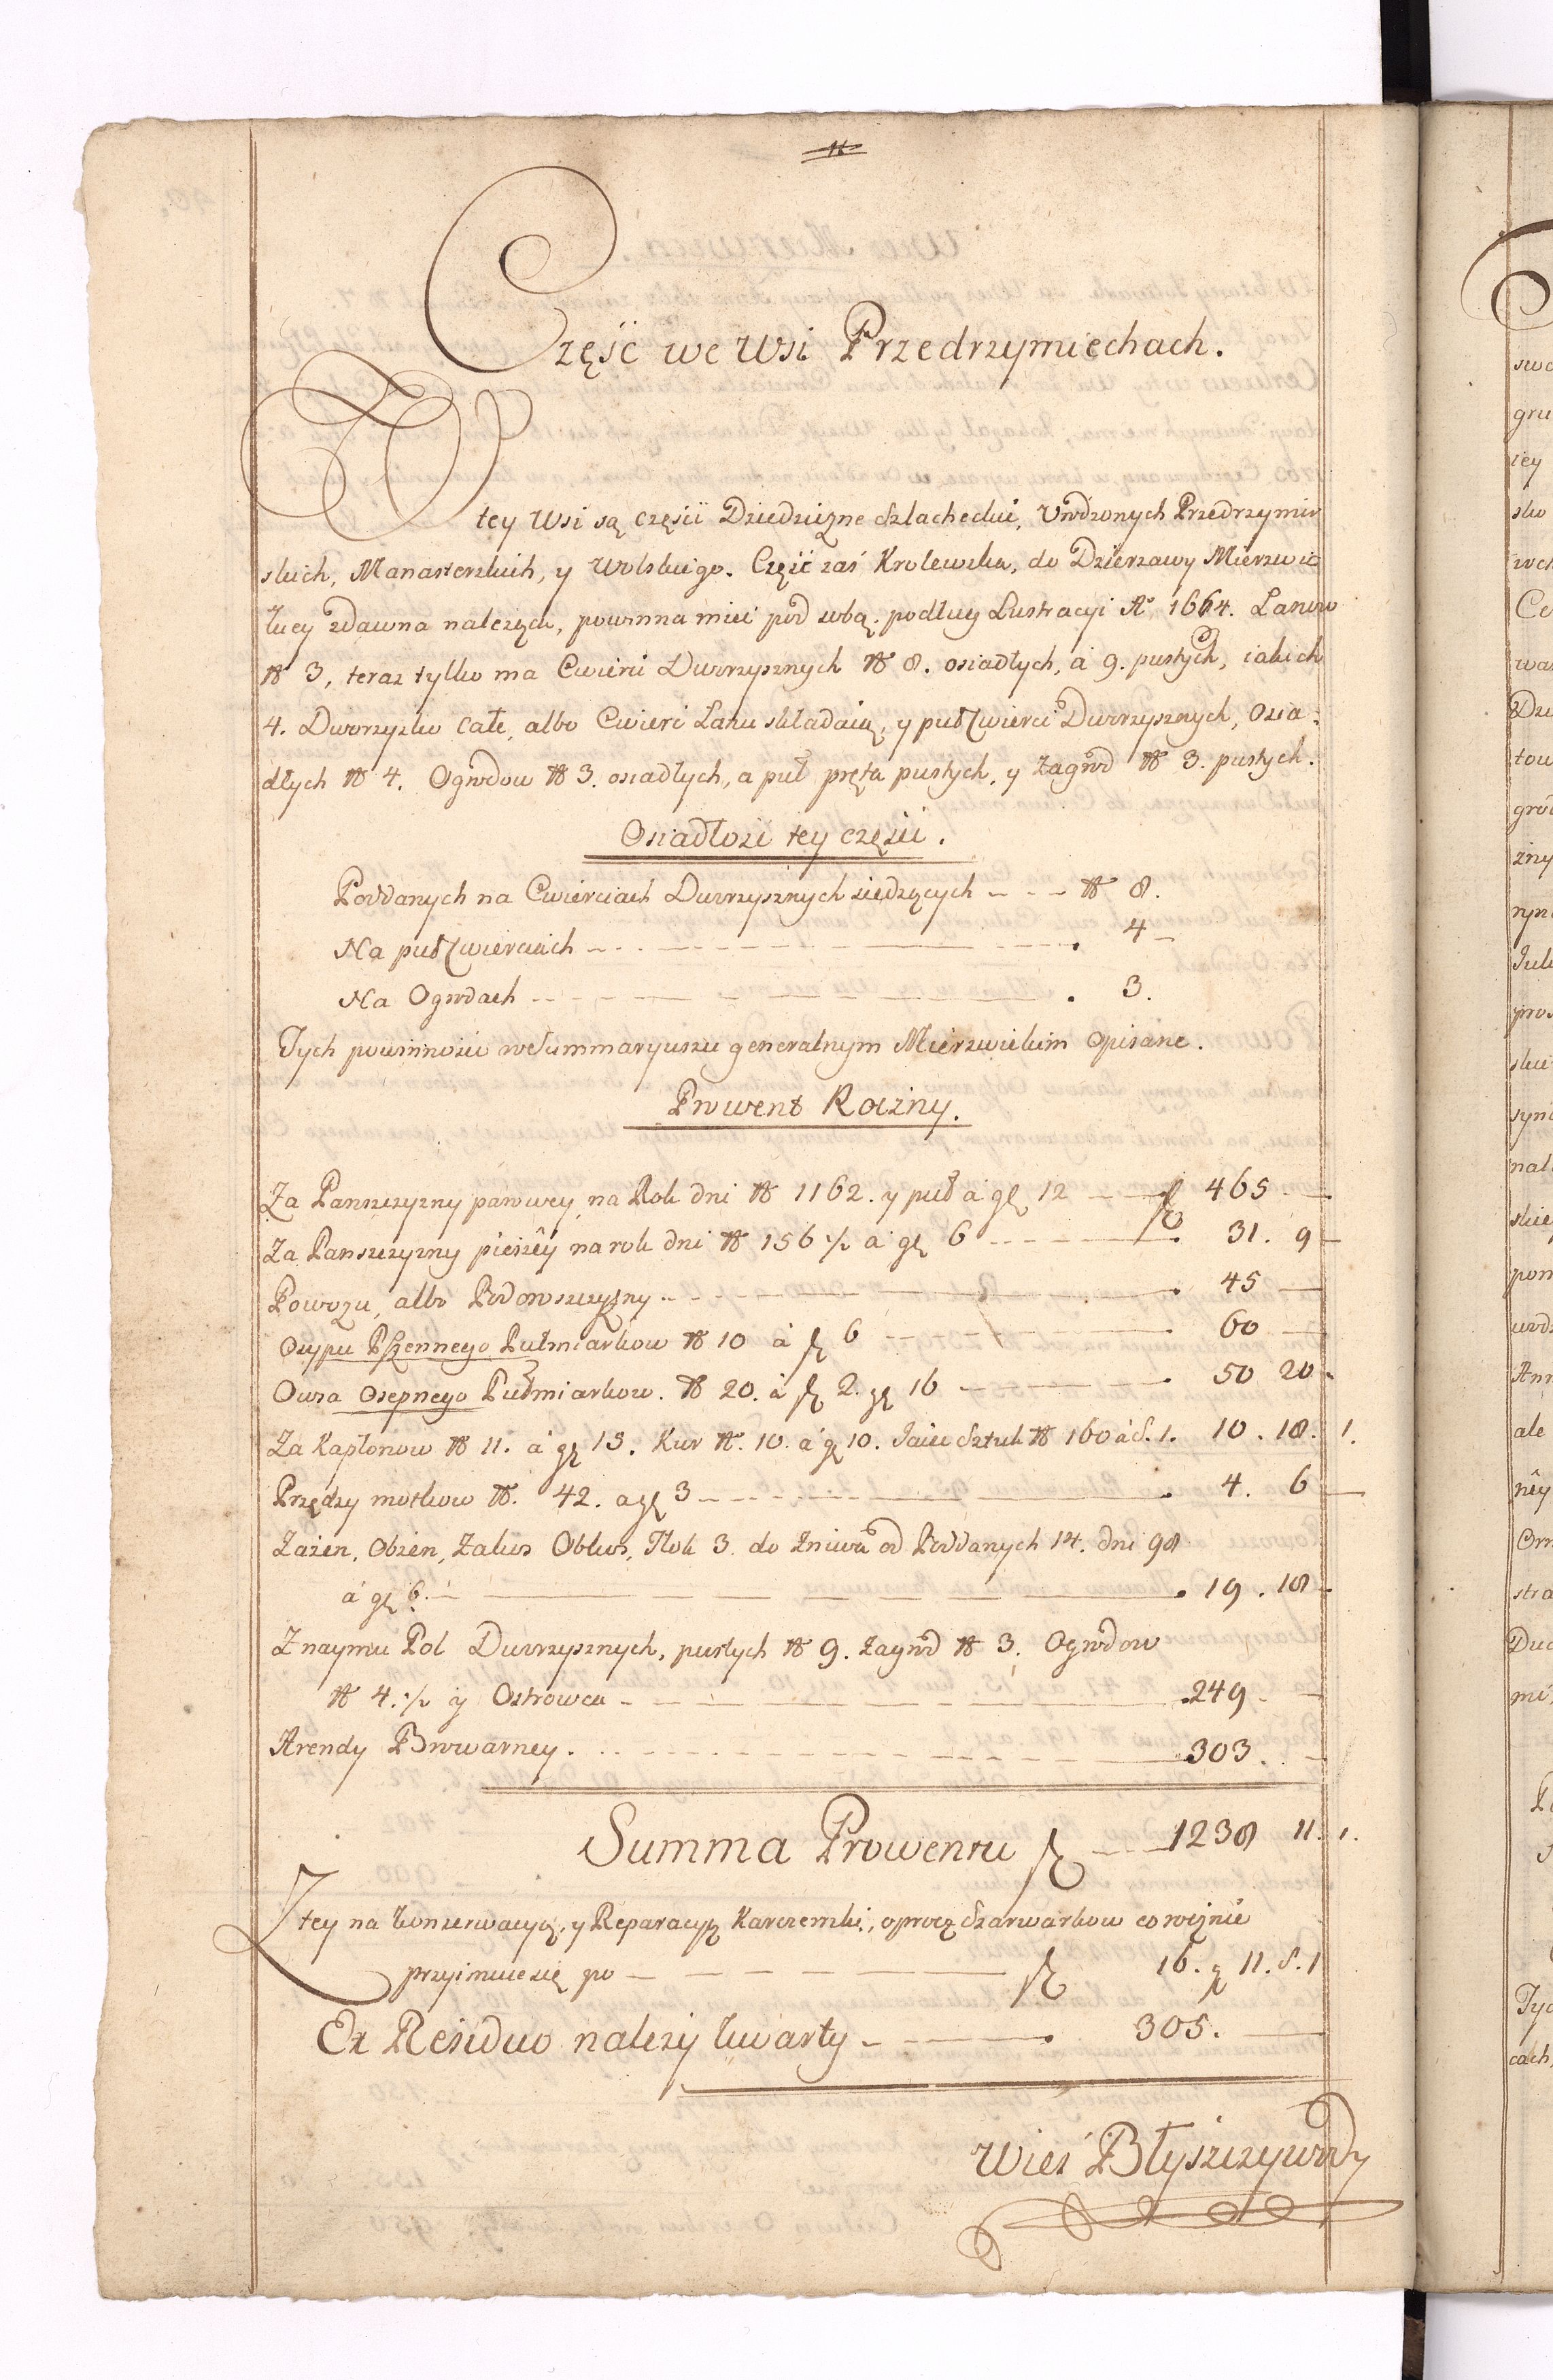 Część we Wsi Przedrzymiechach.
W tey Wsi są części Dziedziczne Szlacheckie, Urodzonych Przedrzymir
skich, Manasterskich, y Wolskiego. Część zaś Krolewska, do Dzierzawy Mierzwic
kiey zdawna należąca, powinna mieć pod sobą podług Lustracyi Ao 1664. Lanow
N 3, teraz tylko ma Cwierci Dworzysznych N 8. osiadłych, a 9. pustych, iakich
4. Dworzysko całe, albo Cwierć Łanu składaią, y puł Cwierci Dworzysznych, Osia-
dłych N 4. Ogrodow N 3. osiadłych, a puł pręta pustych, y Zagrod N 3. pustych.
Osiadłość tey części.
Poddanych na Cwierciach Dworzysznych siedzących - - - N 8.
Na puł Cwierciach - 4 -
Na Ogrodach - 3.
Tych powinności w Summaryuszu generalnym Mierzwickim opisane.
Prowent Roczny.
Za Panszczyzny parowey na Rok dni N 1162. y puł a gr 12 - fl 465 -
Za Panszczyzny pieszey na rok dni N 156 1/2 a gr 6 - 31. 9 -
Powozu, albo Podorowszczyzny - 45 -
Osypu Pszennego Pułmiarkow N 10 á fl 6 - 60 -
Owsa Osepnego Pułmiarkow. N 20. á fl 2. gr 16 - 50 20 -
Za Kapłonow N 11. á gr 15. Kur N. 10. á gr 10. Jaiec Sztuk N 160 á S. 1. 10. 18. 1.
Przędzy motkow N. 42. a gr 3 - 4. 6 -
Zażen, Obżen, Zakos Obkos, Tłok 3. do Zniwa od Poddanych 14. dni 98
á gr 6. - 19. 18 -
Z naymu Pol Dworzysznych, pustych N 9. Zagrod N 3. Ogrodow
N 4. 1/2 y Ostrowca - 249. -
Arendy Browarney. - 303. -
Summa Prowentu fl - 1238 11. 1.
Z tey na konserwacyą, y Reparacyą Karczemki, oprocz Szarwarkow corocznie
przyimuie się po - fl 16. gr 11. S. 1
Ex Residuo należy kwarty - 305. -
Wieś Błyszczywody